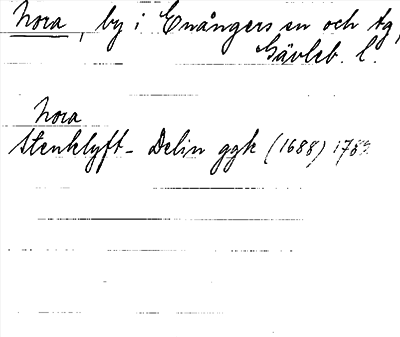 Nora, by i Enångers sn och tg,
Gävleb. l.
Nora
Stenklyft - Delin ggk (1688) 178